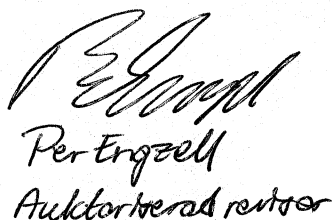 Per Engzell
Auktoriserad revisor